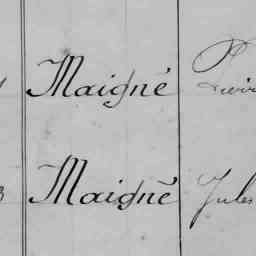 Maigné
Maigné Jules